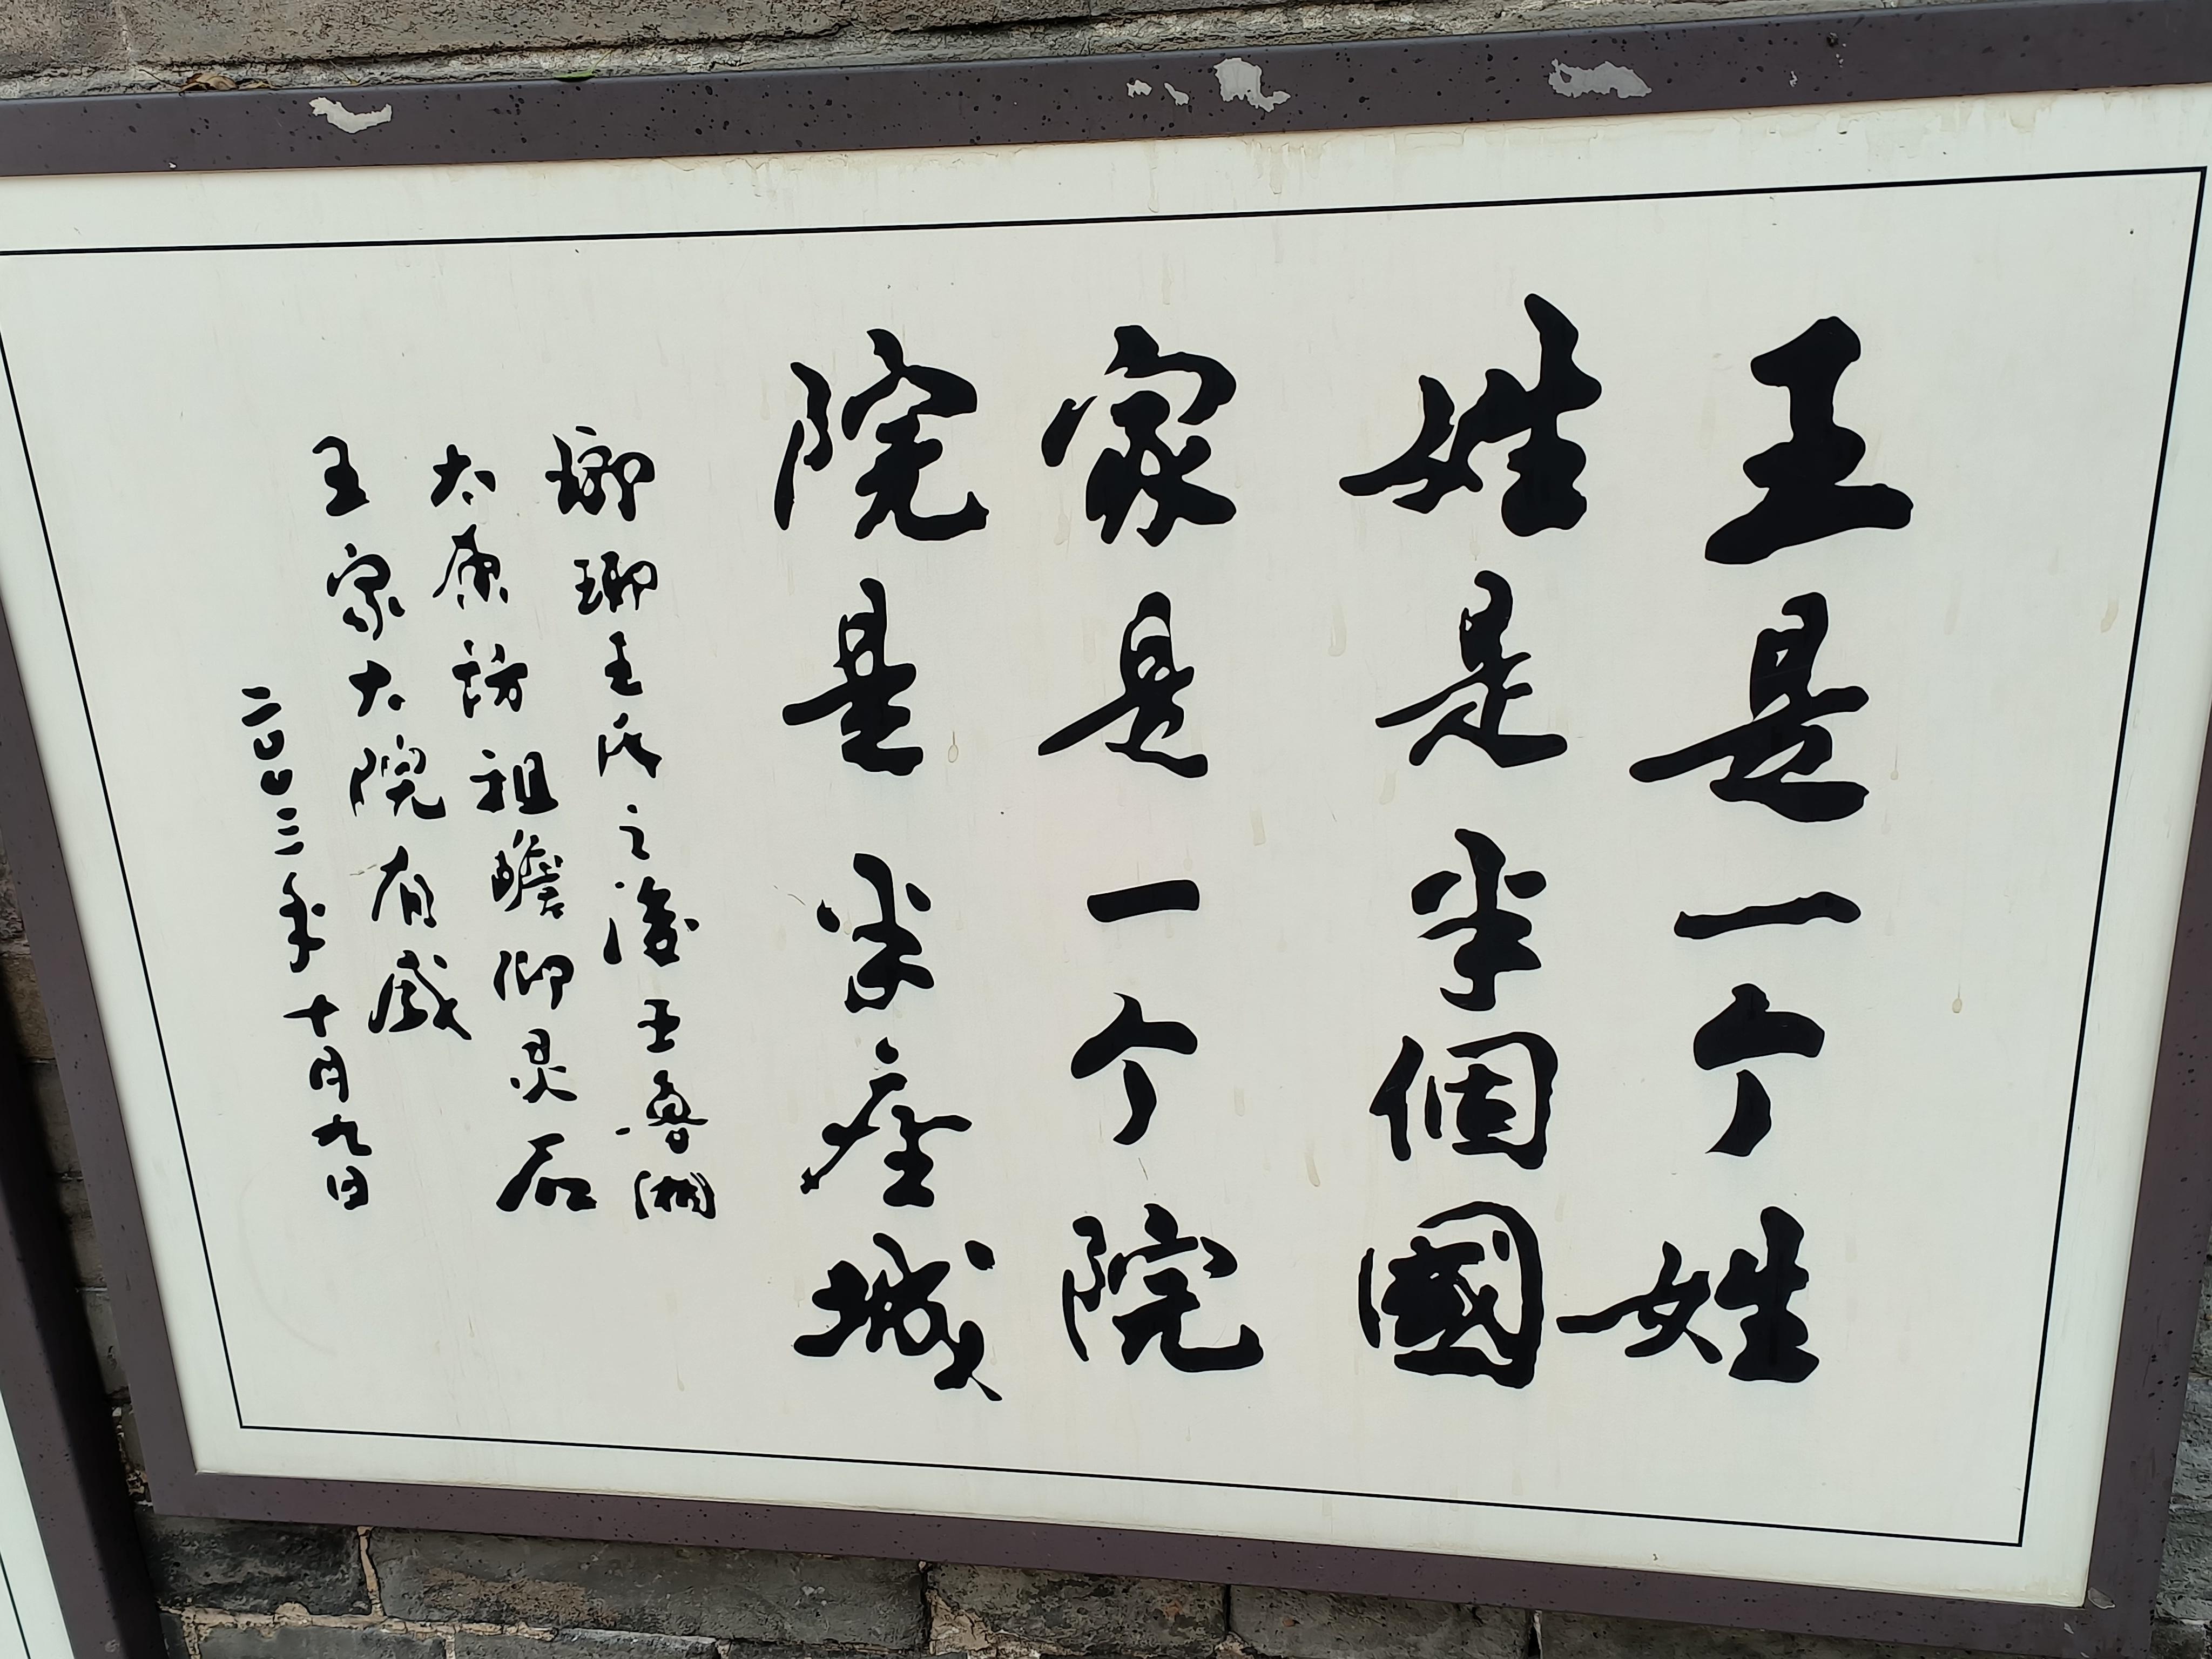 王是一个姓
姓是半個國
家是一个院
院是半座城
瑯琊王氏之後王魯湘
太原訪祖瞻仰灵石
王家大院有感
二〇〇二年十月九日